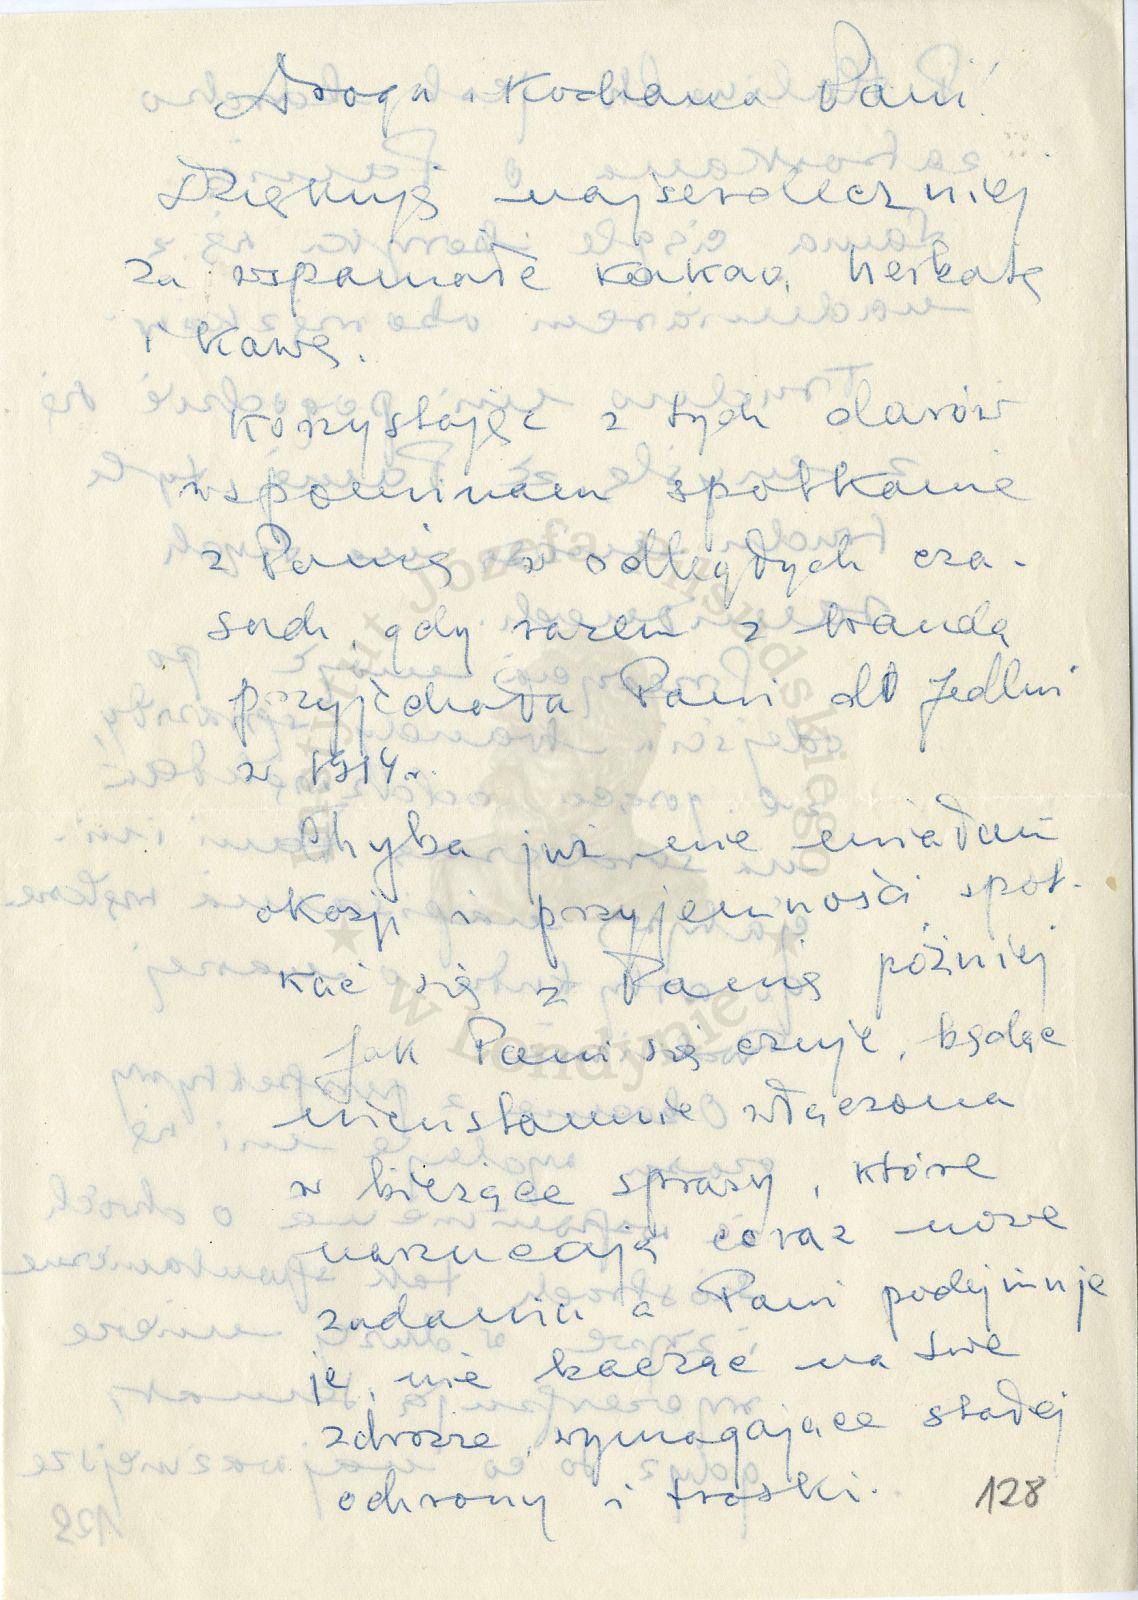 Droga, Kochana Pani!
Dziękuję najserdeczniej
za wspaniałe kakao, herbatę
i kawę.
Korzystając z tych darów
wspominam spotkanie
z Panią w odległych cza-
sach, gdy razem z Wandą
przyjechała Pani do Jedlni
w 1914 r.
Chyba już nie miałam
okazji i przyjemności spot-
kać się z Panią później
Jak Pani się czuje, będąc
nieustannie włączona
w bieżące sprawy, które
narzucają coraz nowe
zadania a Pani podejmuje
je, nie bacząc na swe
zdrowie, wymagające stałej
ochrony i troski.
128
Instytut Józefa Piłsudskiego
w Londynie